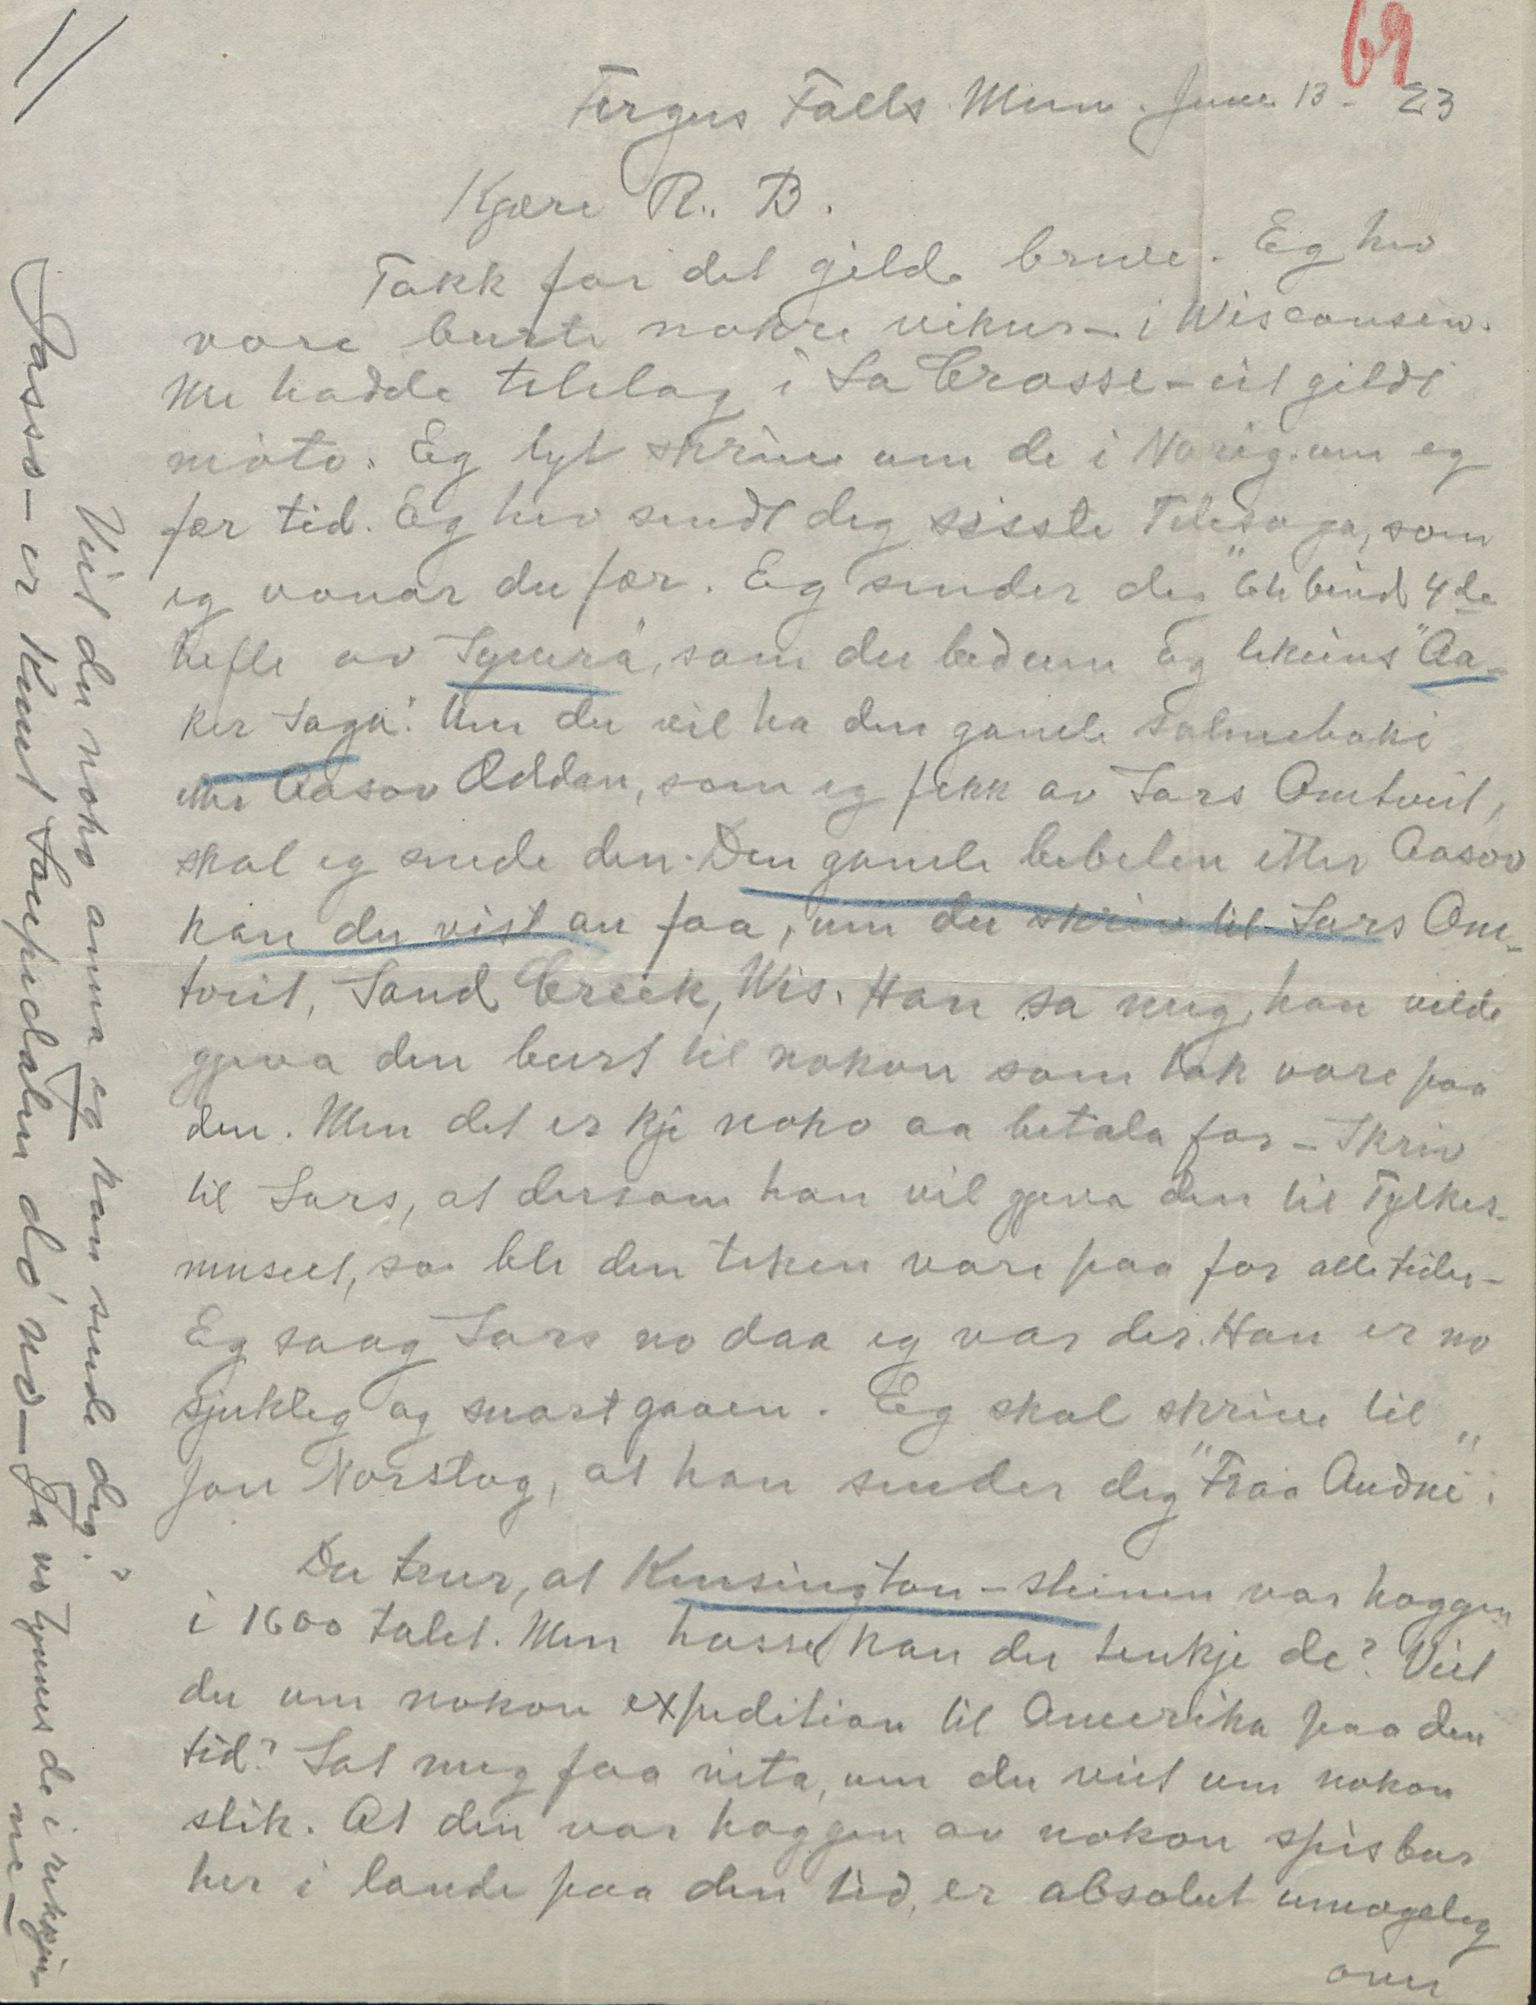 1/
69
Fergus Falls Minn. June 13 - 23
Kjære R. B.
Takk for det gilde breve. Eg hev
vore burte nokre vikur - i Wisconsin.
Me hadde telelag i La Crosse - eit gildt
møte. Eg lyt skrive um de i Norig. um eg
fær tid. Eg hev sendt deg sisste Telesoga, som
eg vonar du fær. Eg sender deg 6te bind 4de
hefte av "Symra", som du bed um og likeins "Aa-
ker Saga". Um du vil ha den gamle salmeboki
etter Aasov Oddan, som eg fekk av Lars Omtveit,
skal eg sende den. Den gamle bibelen etter Aasov
kan du vist au faa, um du skriv til Lars Om-
tveit, Sand Creek, Wis. Han sa meg, han vilde
gjeva den burt til nokon som tok vare paa
den. Men det er kje noko aa betala for - Skriv
til Lars, at dersom han vil gjeva den til Fylkes-
museet, so ble den teken vare paa for alle tider -
Eg saag Lars no daa eg var der. Han er no
sjukleg og snart gaaen. Eg skal skrive til
Jon Norstog, at han sender deg "Fraa Audni".
Du trur, at Kensington-steinen var hoggen
i 1600 talet. Men hosse kan du tenkje de? Veit
du um nokon expedition til Amerika paa den
tid? Lat meg faa vita, um du veit um nokon
slik. At den var hoggen av nokon spisbur
her i lande paa den tid, er absolut umogeleg
over
Veit du noko anna eg kan sende deg?
Jasso - er Knut Loupedalen dø no - Ja no tynnes de i rekkjun
me -